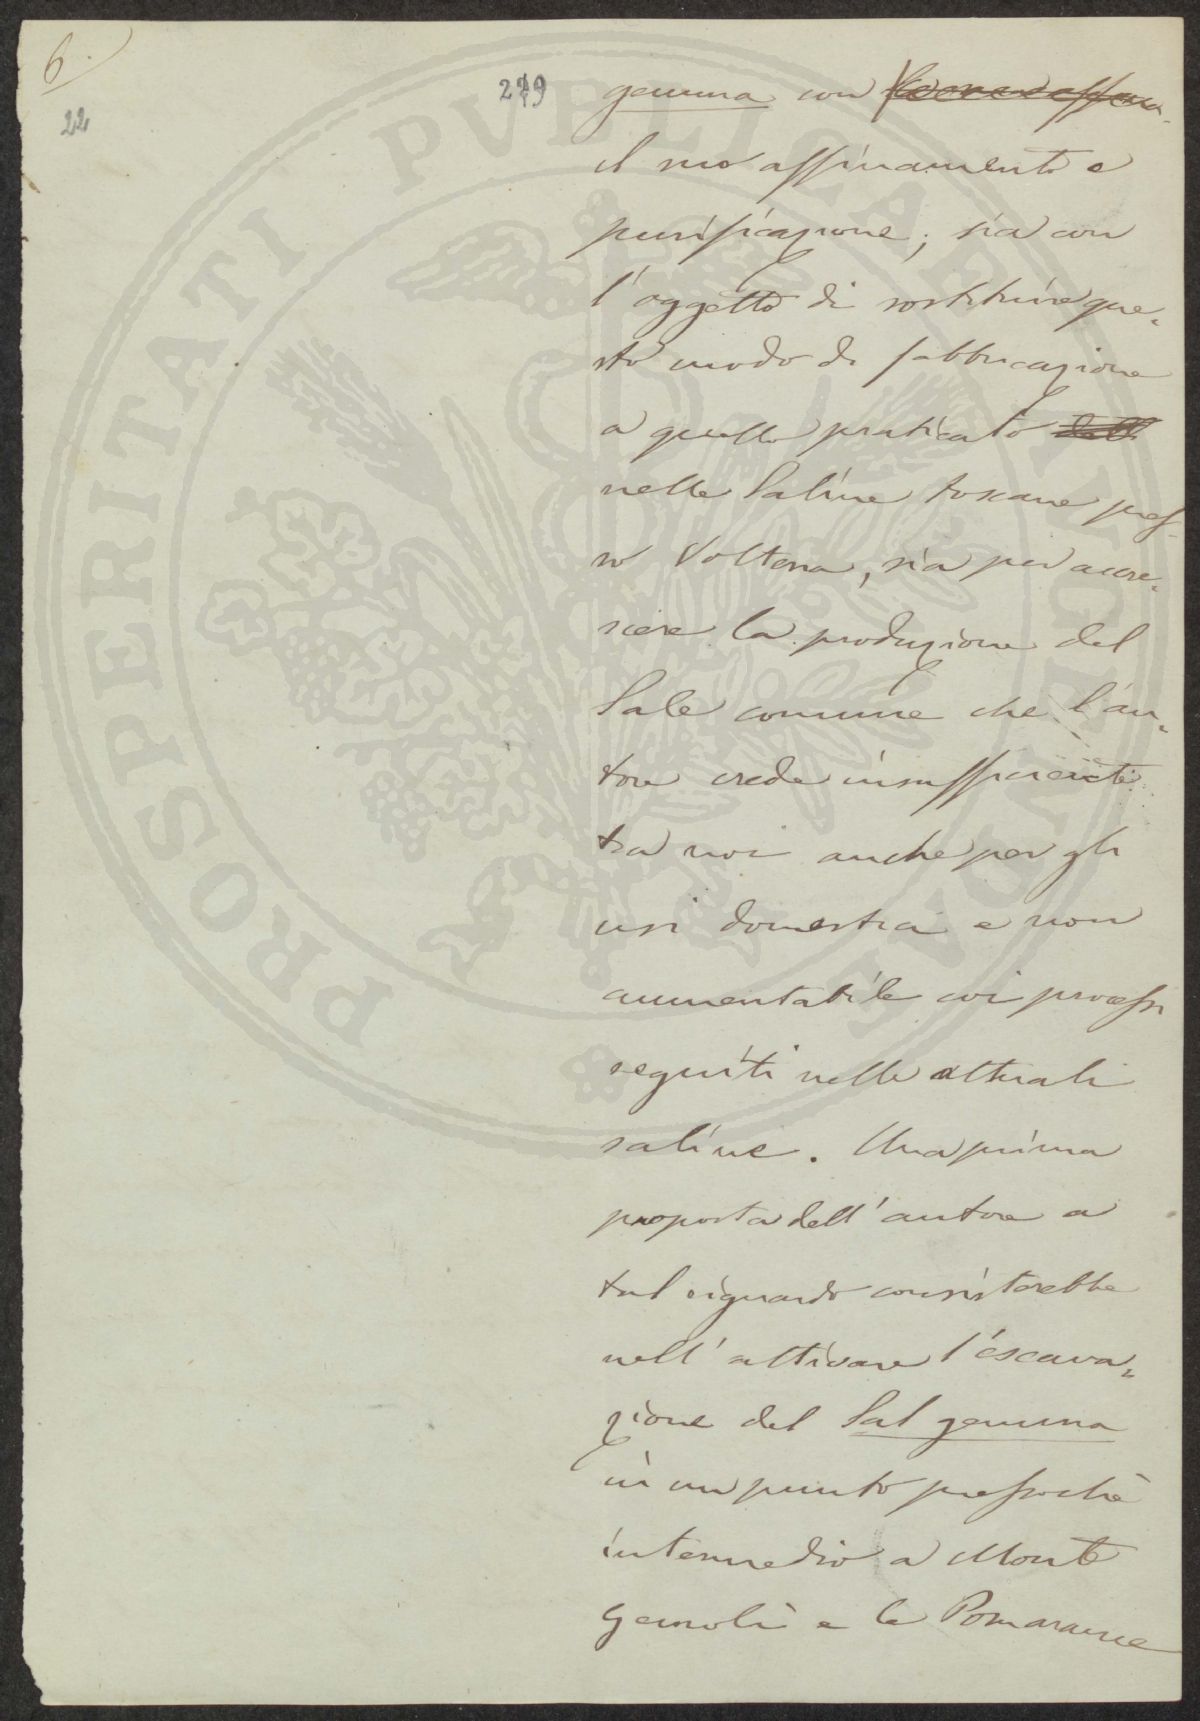 6.
22
279
gemma con
il suo affinamento e
purificazione; sia con
l'oggetto di sostituire que=
sto modo di fabbricazione
a quello praticato dell
nelle Saline toscane pres=
so Volterra, sia per accre=
scere la produzione del
Sale comune che l'au=
tore crede insufficiente
tra noi anche per gli
usi domestici e non
aumentabile coi processi
seguiti nelle attuali
saline. Una prima
proposta dell'autore a
tal riguardo consisterebbe
nell'attivare l'escava=
zione del Sal gemma
in un punto pressochè
intermedio a Monte
Gemoli e le Pomarance
PROSPERITATI PVBLICAE AVGENDAE